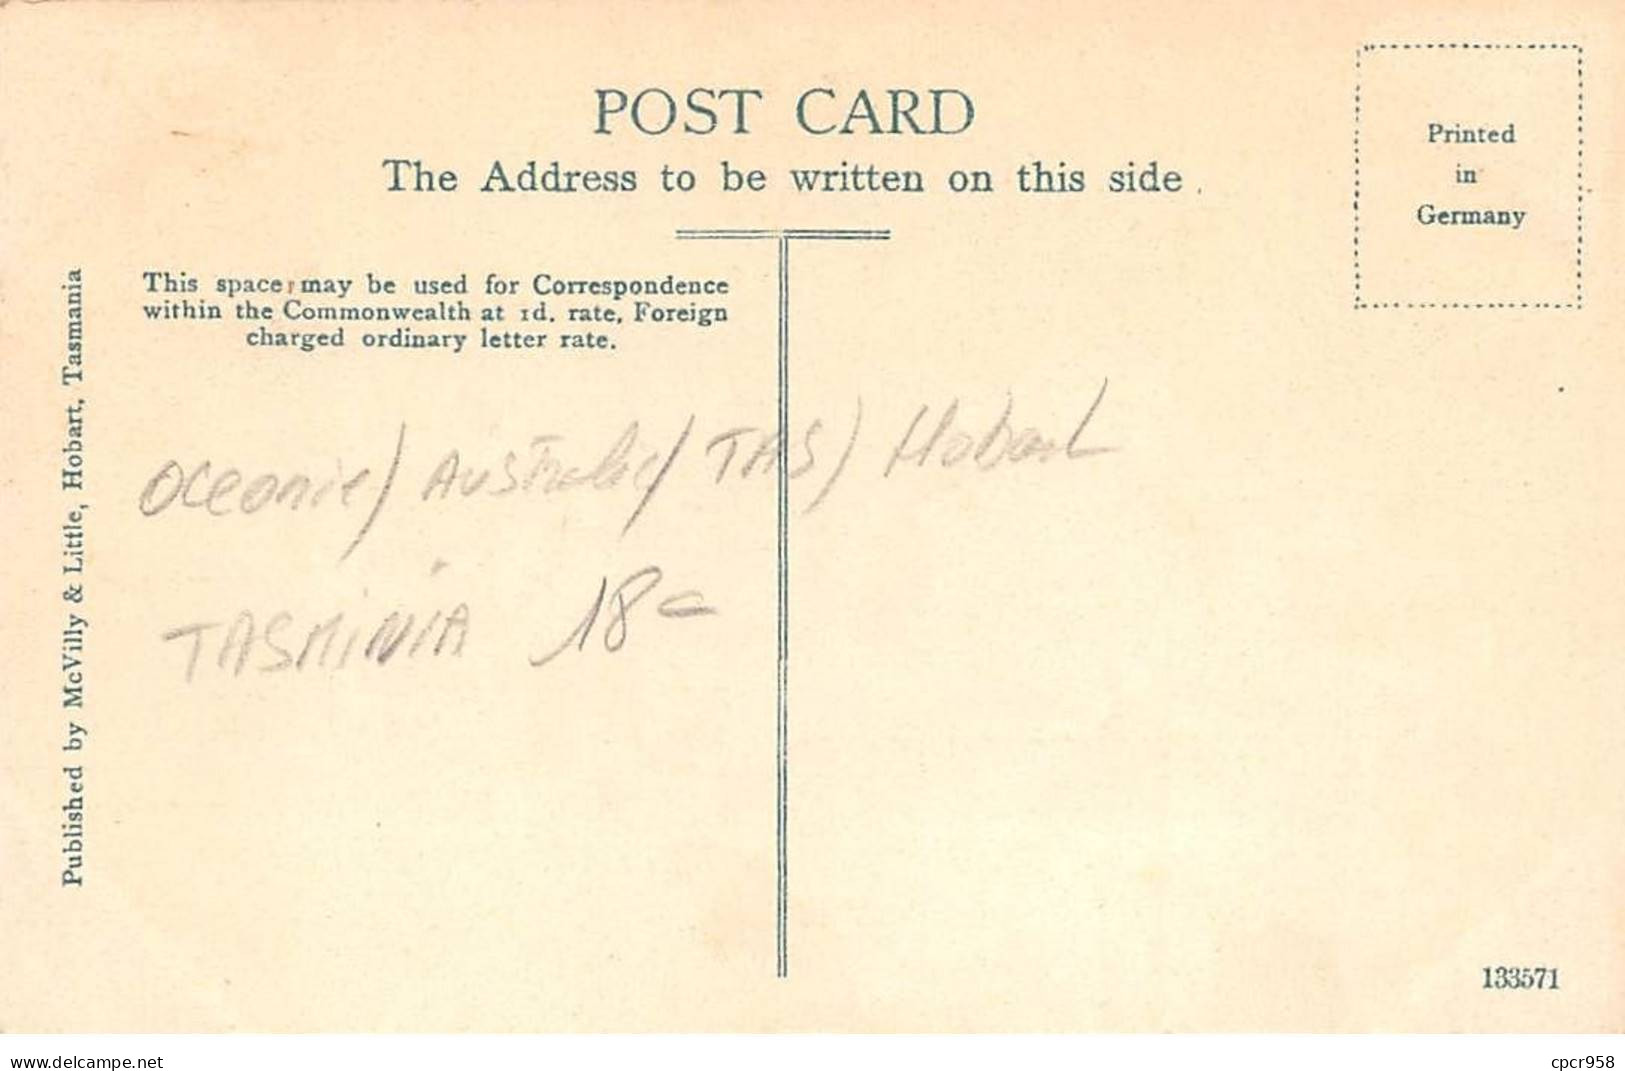 POST CARD
The Address to be written on this side
Printed
in
Germany
This space may be used for Correspondence
within the Commonwealth at 1d. rate, Foreign
charged ordinary letter rate.
Published by McVilly & Little, Hobart, Tasmania
Oceanie / Australie / TAS / Hobart
TASMINIA 18
133571
www.delcampe.net
cpcr958